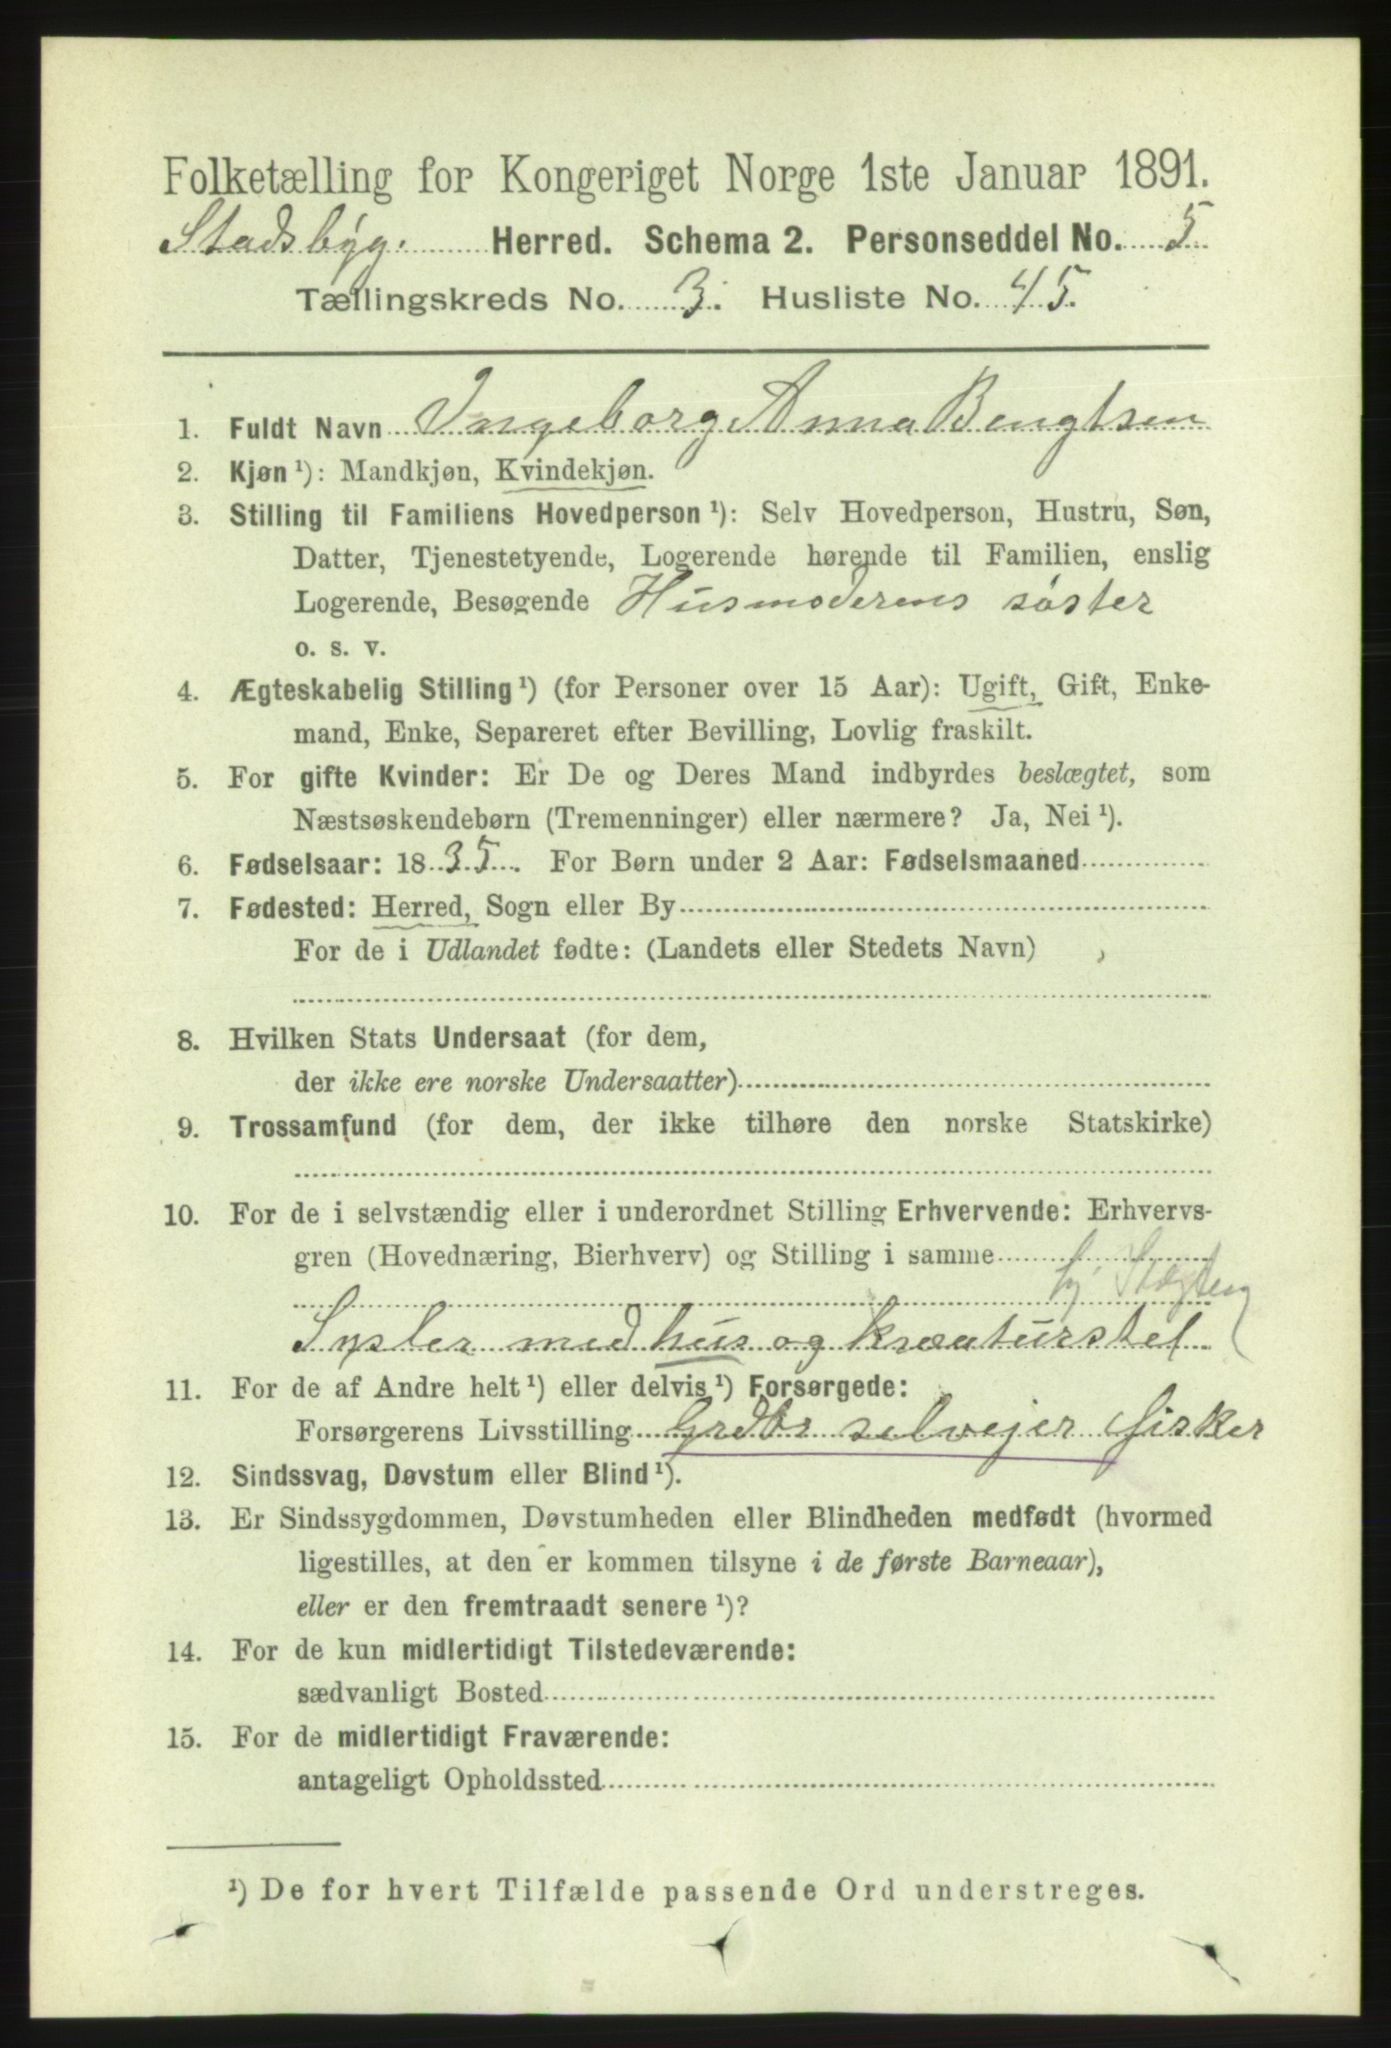 Folketælling for Kongeriget Norge 1ste Januar 1891.
Stadsbygd Herred. Schema 2. Personseddel No. 5
Tællingskreds No. 3. Husliste No. 45.
1. Fuldt Navn Ingeborg Anna Bengtsen
2. Kjøn ¹): Mandkjøn, Kvindekjøn.
3. Stilling til Familiens Hovedperson ¹): Selv Hovedperson, Hustru, Søn,
Datter, Tjenestetyende, Logerende hørende til Familien, enslig
Logerende, Besøgende Husmoderens søster
o. s. v.
4. Ægteskabelig Stilling ¹) (for Personer over 15 Aar): Ugift, Gift, Enke-
mand, Enke, Separeret efter Bevilling, Lovlig fraskilt.
5. For gifte Kvinder: Er De og Deres Mand indbyrdes beslægtet, som
Næstsøskendebørn (Tremenninger) eller nærmere? Ja, Nei ¹).
6. Fødselsaar: 1835. For Børn under 2 Aar: Fødselsmaaned
7. Fødested: Herred, Sogn eller By
For de i Udlandet fødte: (Landets eller Stedets Navn)
8. Hvilken Stats Undersaat (for dem,
der ikke ere norske Undersaatter)
9. Trossamfund (for dem, der ikke tilhøre den norske Statskirke)
10. For de i selvstændig eller i underordnet Stilling Erhvervende: Erhvervs-
gren (Hovednæring, Bierhverv) og Stilling i samme
Sysler med hus og kreaturstel
11. For de af Andre helt ¹) eller delvis ¹) Forsørgede:
Forsørgerens Livsstilling Grdbr selvejer fisker
12. Sindssvag, Døvstum eller Blind ¹).
13. Er Sindssygdommen, Døvstumheden eller Blindheden medfødt (hvormed
ligestilles, at den er kommen tilsyne i de første Barneaar),
eller er den fremtraadt senere ¹)?
14. For de kun midlertidigt Tilstedeværende:
sædvanligt Bosted
15. For de midlertidigt Fraværende:
antageligt Opholdssted
¹) De for hvert Tilfælde passende Ord understreges.